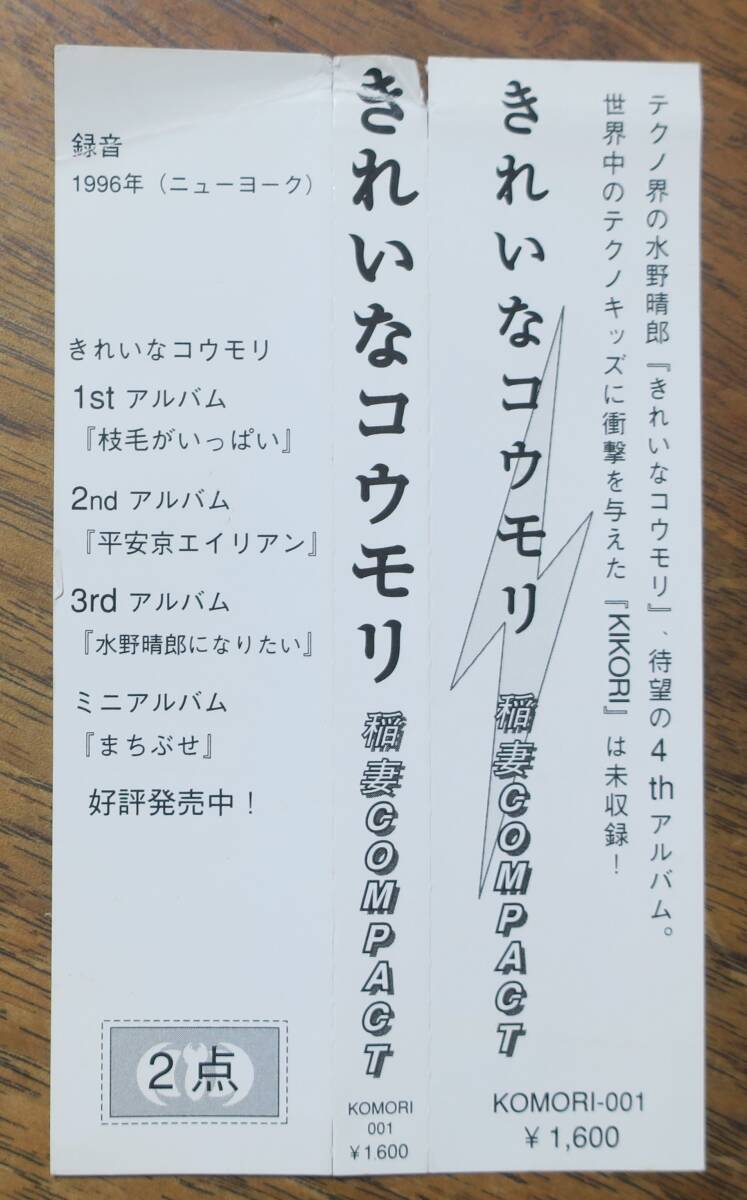 テクノ界の水野晴郎『きれいなコウモリ』、待望の4thアルバム。
世界中のテクノキッズに衝撃を与えた『KIKORI』は未収録！
きれいなコウモリ
稲妻COMPACT
KOMORI-001
¥1,600
きれいなコウモリ
稲妻COMPACT
KOMORI
001
¥1,600
録音
1996年（ニューヨーク）
きれいなコウモリ
1st アルバム
『枝毛がいっぱい』
2nd アルバム
『平安京エイリアン』
3rd アルバム
『水野晴郎になりたい』
ミニアルバム
『まちぶせ』
好評発売中！
2点